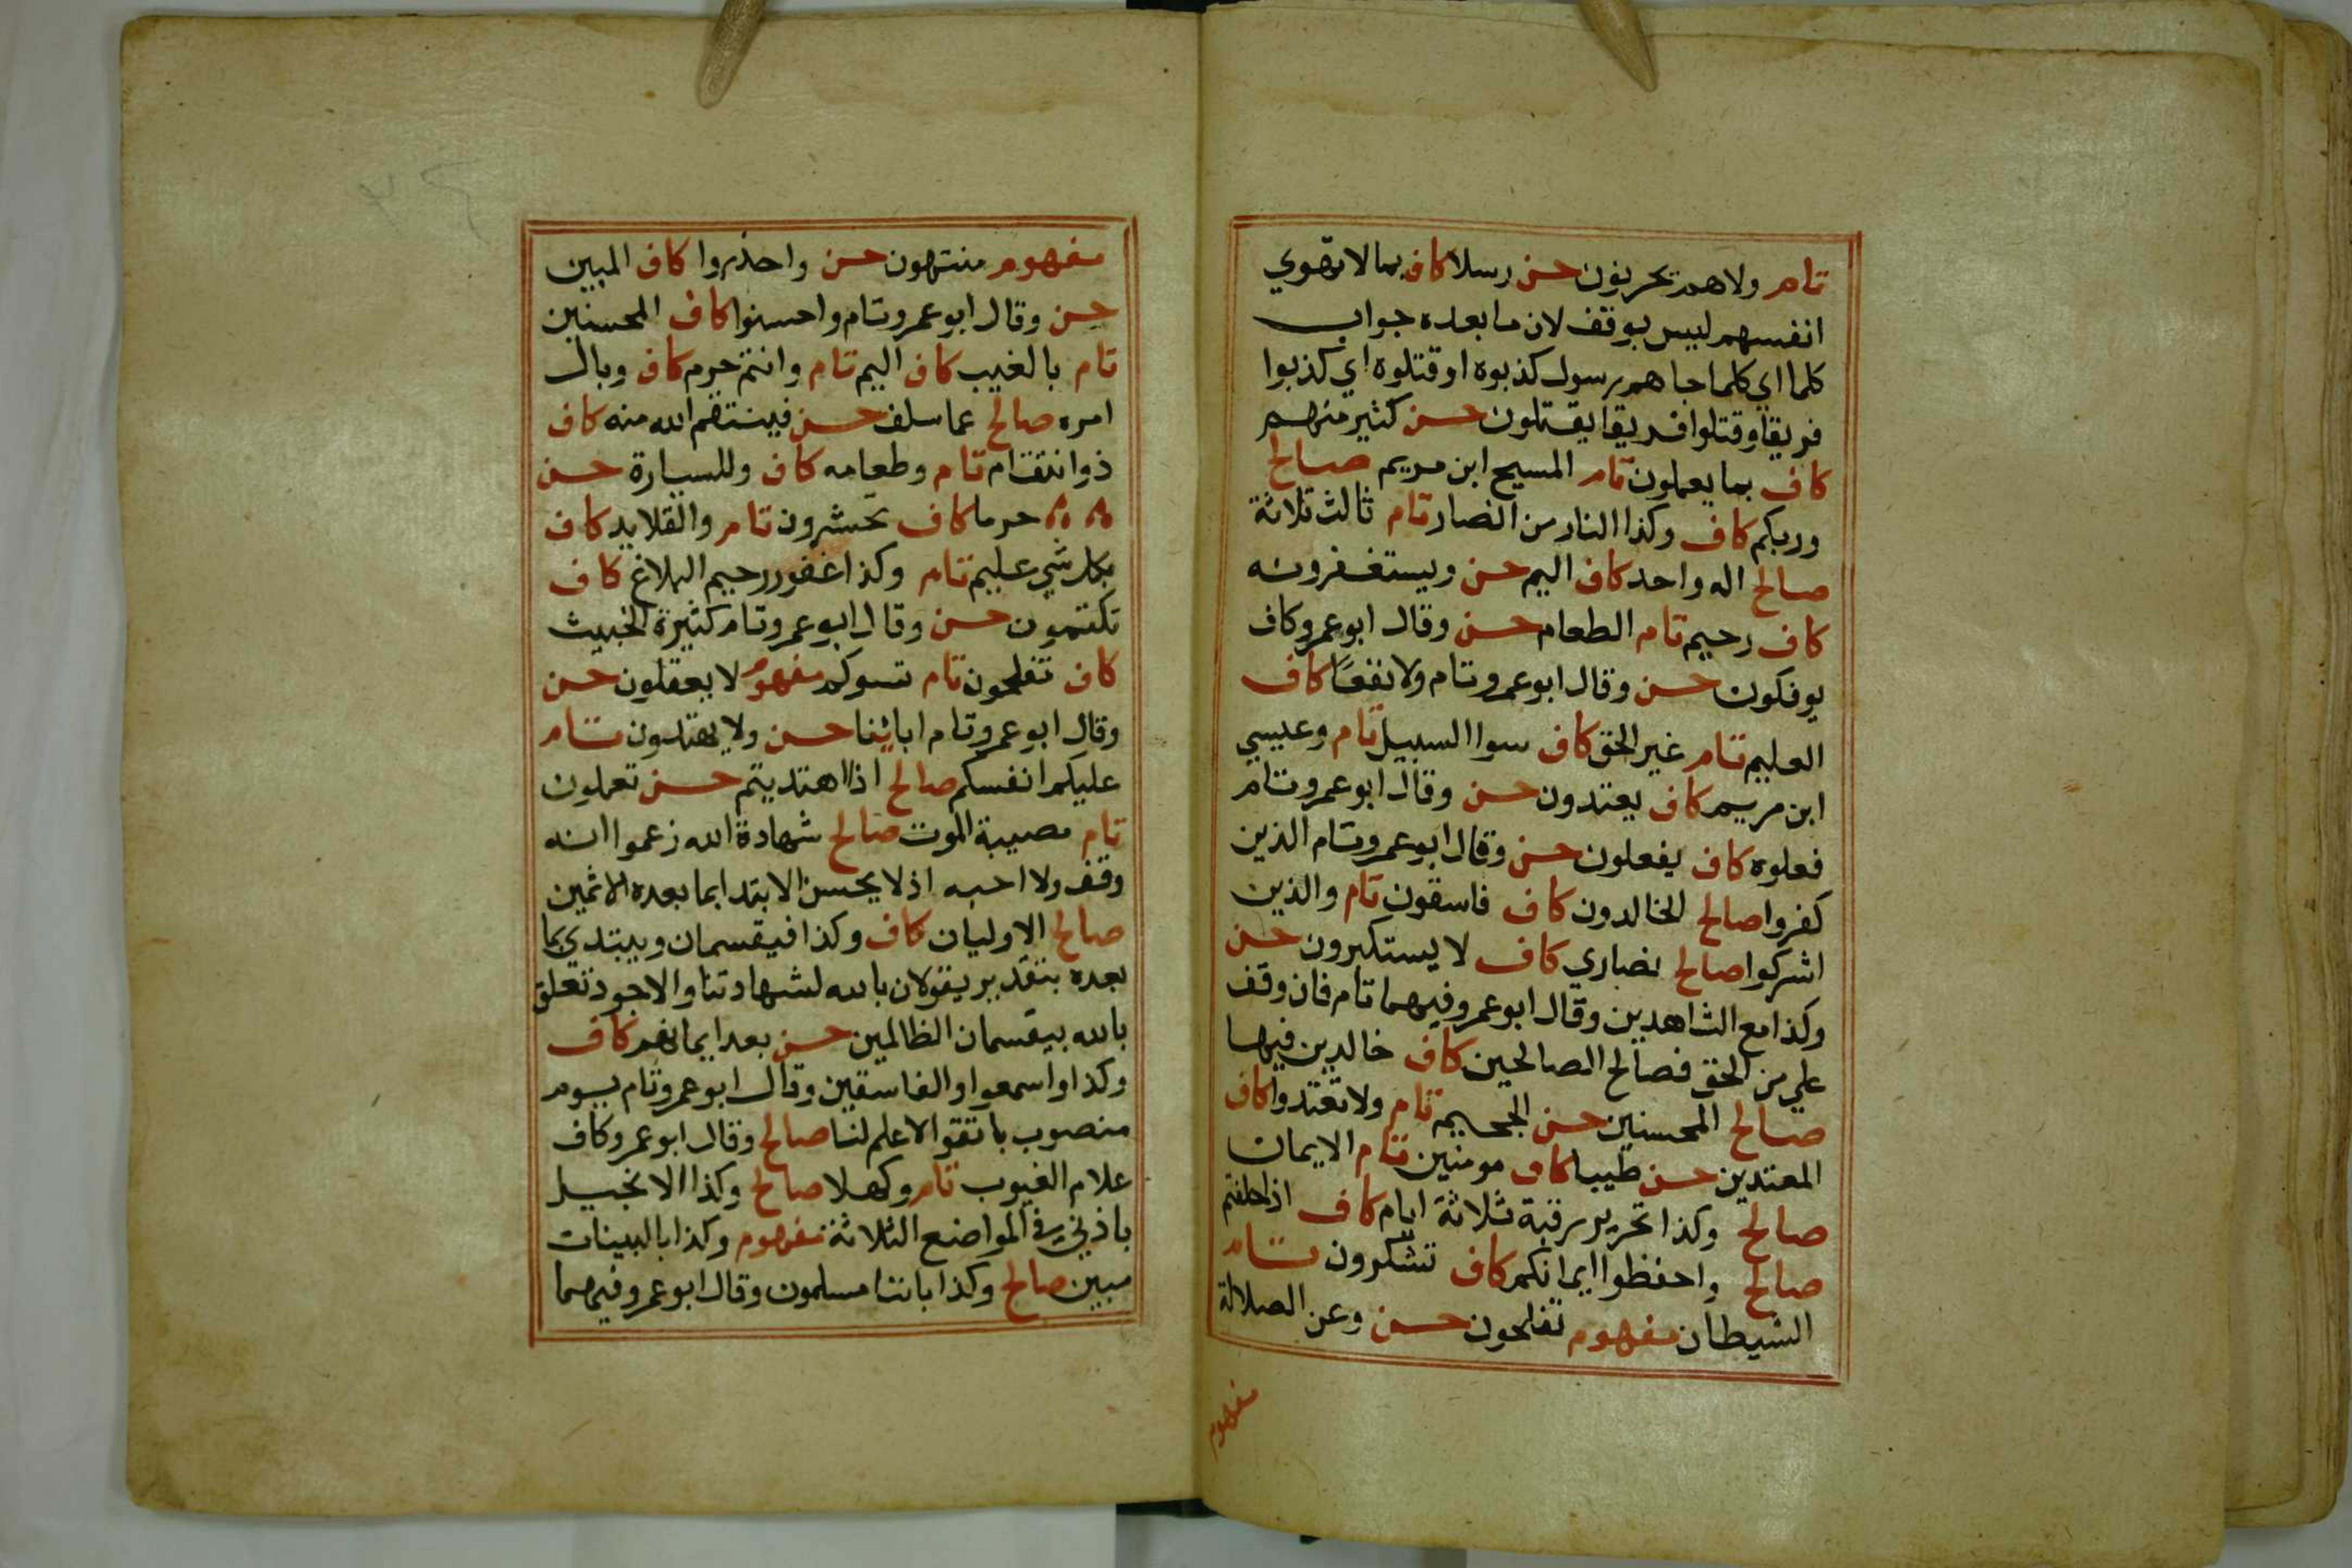 تام ولا هم يحزنون حسن رسلا كاف بما لا تهوي
انفسهم ليس بوقف لان ما بعده جواب
كلما اي كلما جاهم رسول كذبوه او قتلوه اي كذبوا
فريقا وقتلوا فريقا يقتلون حسن كثير منهم
كاف بما يعملون تام المسيح ابن مريم صالح
وربكم كاف وكذا النار من انصار تام ثالث ثلاثة
صالح اله واحد كاف اليم حسن ويستغفرونه
كاف رحيم تام الطعام حسن وقال ابو عمرو كاف
يوفكون حسن وقال ابو عمرو تام ولا نفعًا كاف
العليم تام غير الحق كاف سوا السبيل تام وعيسي
ابن مريم كاف يعتدون حسن وقال ابو عمرو تام
فعلوه كاف يفعلون حسن وقال ابو عمرو تام الذين
كفروا صالح الخالدون كاف فاسقون تام والذين
اشركوا صالح نصاري كاف لا يستكبرون حسن
وكذا مع الشاهدين وقال ابو عمرو فيهما تام فان وقف
علي من الحق فصالح الصالحين كاف خالدين فيها
صالح المحسنين حسن الجحيم تام ولا تعتدوا كاف
المعتدين حسن طيبا كاف مومنين تام الايمان
صالح وكذا تحرير رقبة ثلاثة ايام كاف اذا حلفتم
صالح واحفظوا ايمانكم كاف تشكرون تام
الشيطان مفهوم تفلحون حسن وعن الصلالة
مفهوم
مفهوم منتهون حسن واحذروا كاف المبين
حسن وقال ابو عمرو تام واحسنوا كاف المحسنين
تام بالغيب كاف اليم تام وانتم حرم كاف وبال
امره صالح عما سلف حسن فينتقم الله منه كاف
ذو انتقام تام وطعامه كاف وللسيارة حسن
حرما كاف تحشرون تام والقلايد كاف
بكل شي عليم تام وكذا غفور رحيم البلاغ كاف
تكتمون حسن وقال ابو عمرو تام كثيرة الخبيث
كاف تفلحون تام تسوكم مفهوم لا يعقلون حسن
وقال ابو عمرو تام ابائنا حسن ولا يهتدون تام
عليكم انفسكم صالح اذا اهتديتم حسن تعملون
تام مصيبة الموت صالح شهادة الله زعموا انه
وقف ولا احبه اذ لا يحسن الابتدا بما بعده الاثمين
صالح الاوليان كاف وكذا فيقسمان ويبتدي بما
بعده بتقدير يقولان بالله لشهادتنا والاجود تعلق
بالله بيقسمان الظالمين حسن بعد ايمانهم كاف
وكذا واسمعوا والفاسقين وقال ابو عمرو تام يوم
منصوب باتقوا لا علم لنا صالح وقال ابو عمرو كاف
علام الغيوب تام وكهلا صالح وكذا الانجيل
باذني في المواضع الثلاثة مفهوم وكذا بالبينات
مبين صالح وكذا باننا مسلمون وقال ابو عمرو فيهما